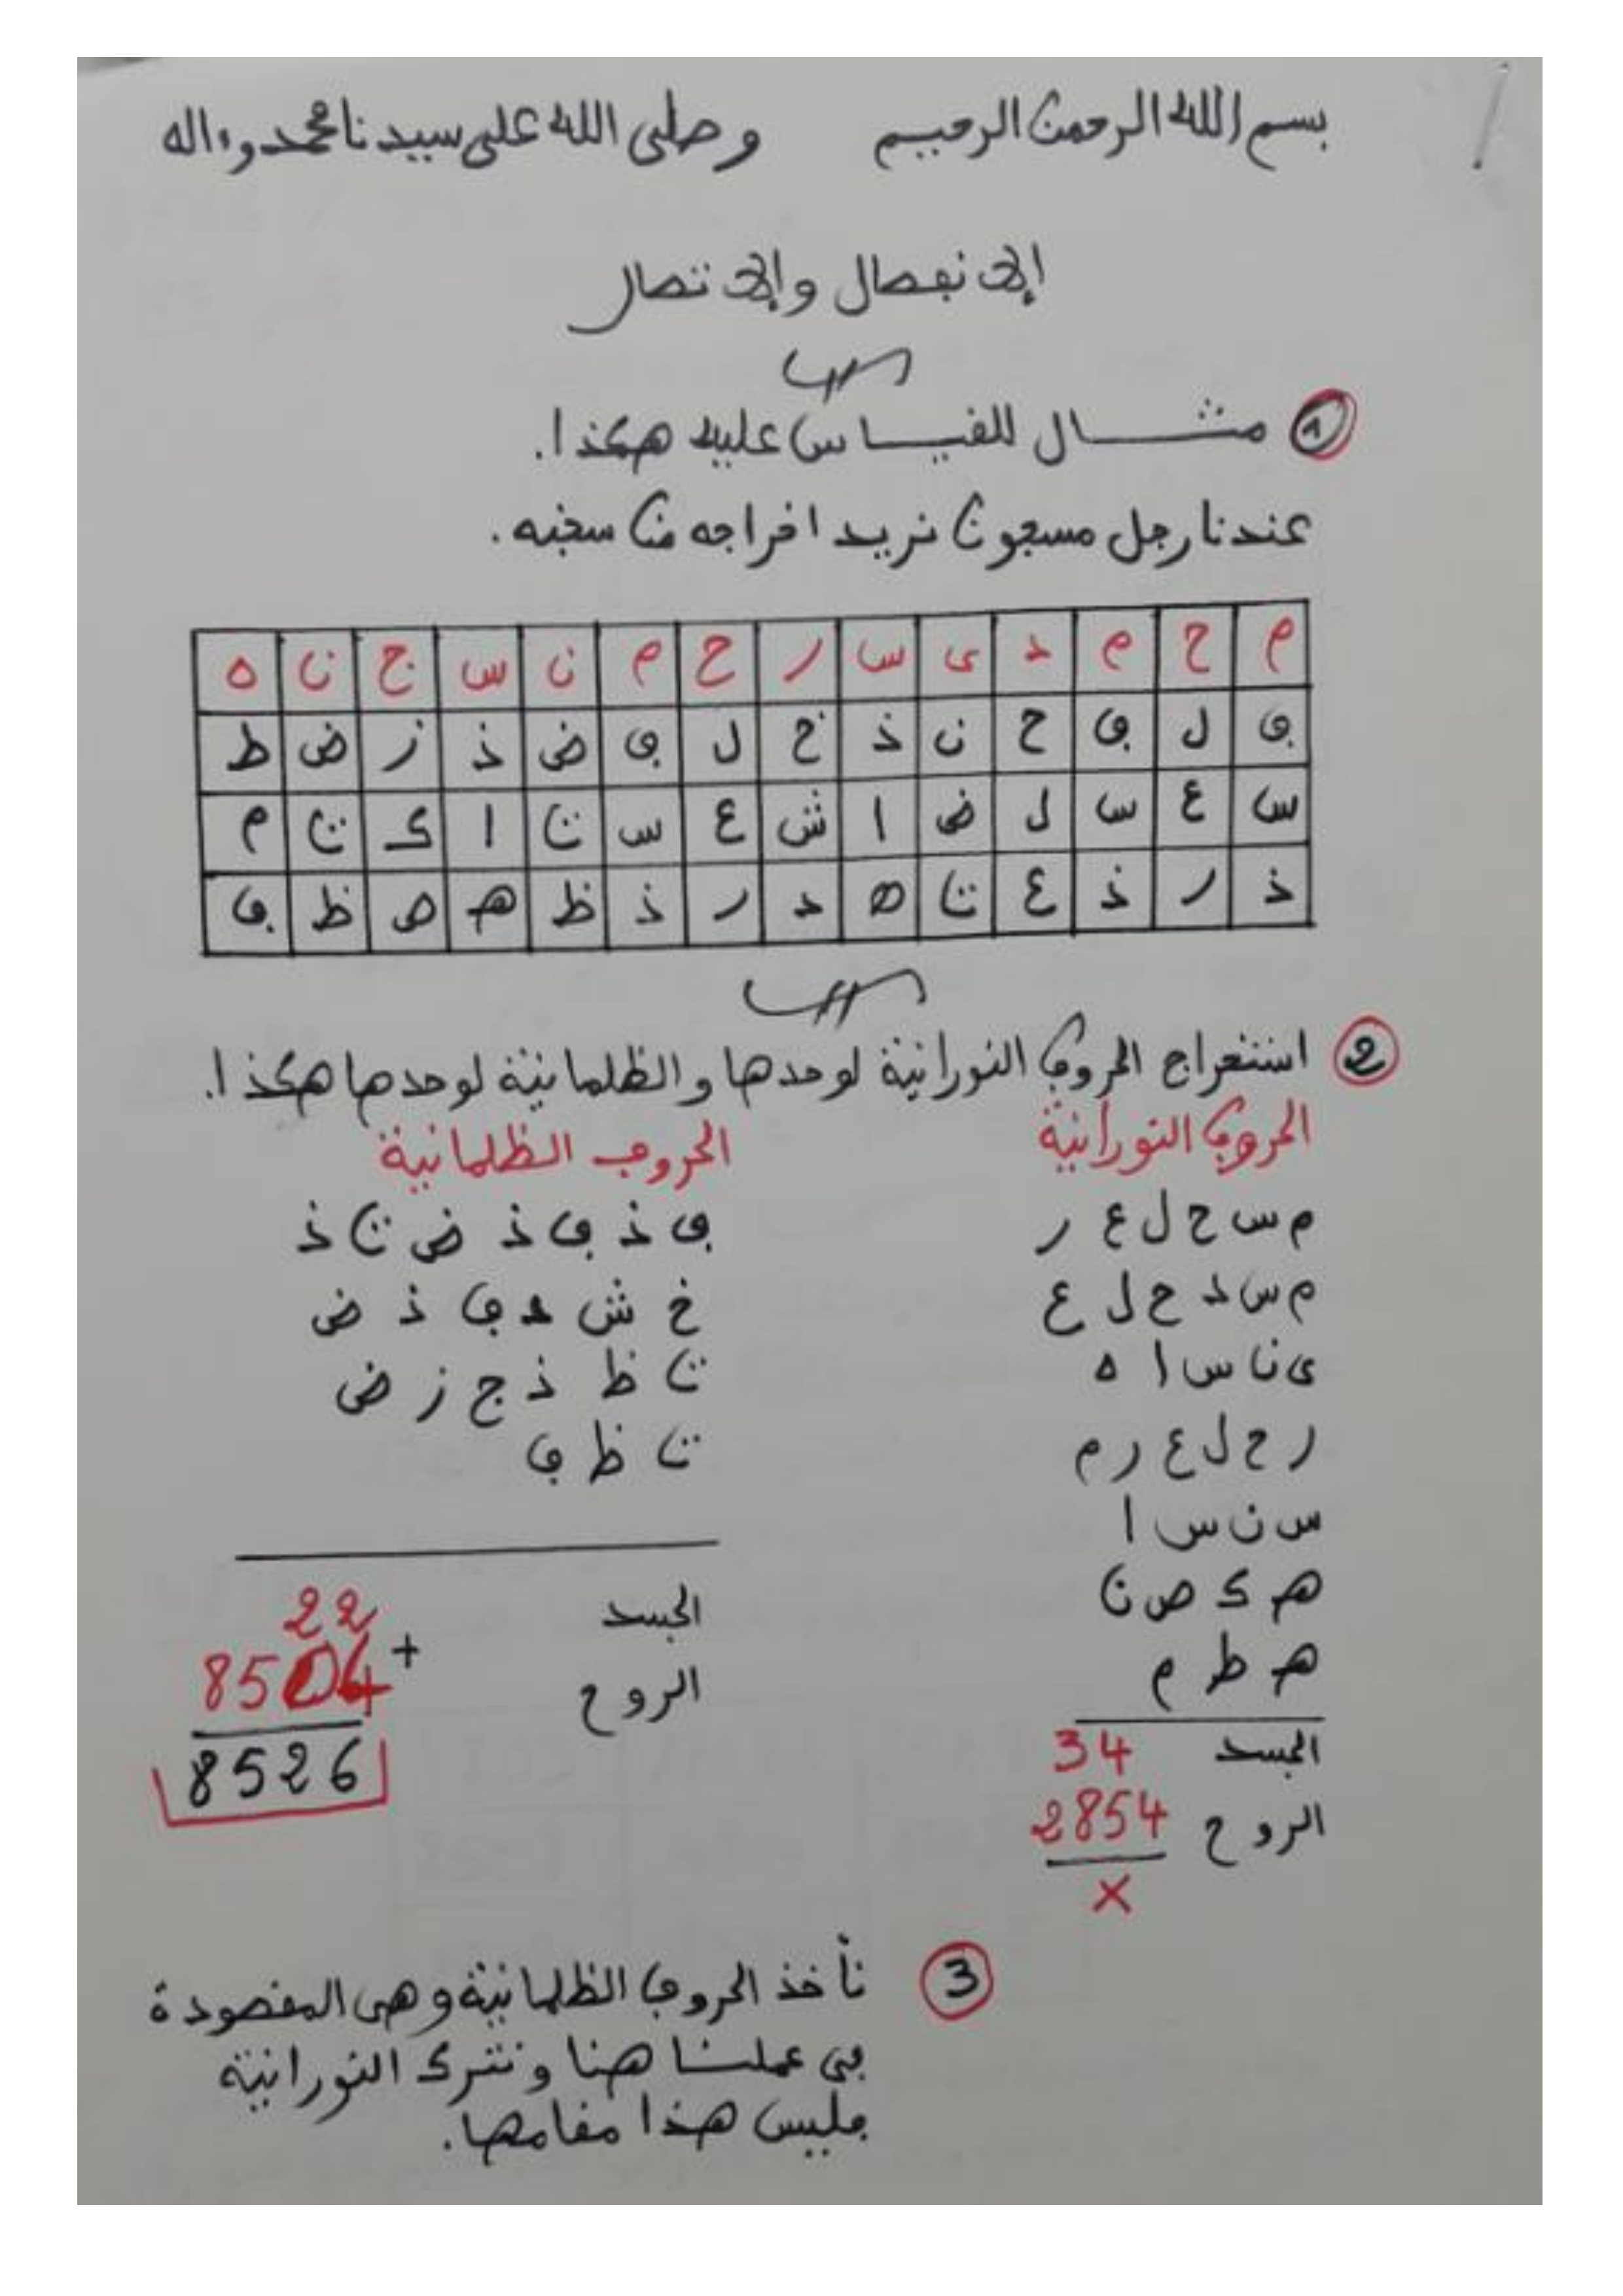 بسم الله الرحمن الرحيم وصلى الله على سيدنا محمد وءاله
إلا نفصال وإلا تصال
1 مثـــال للقيـــاس عليه هكذا.
عندنا رجل مسجون نريد افراجه من سجنه.
م ح م د ى س ر ح م ن س ج ن ه
ف ل ف ح ن ذ خ ل ف ض ذ ز ض ط
س ع س ل ض ا ش ع س ت ا ك ت م
ذ ر ذ ع ت ه د ر ذ ظ هـ ص ظ ف
2 استخراج الحروف النورانية لوحدها والظلمانية لوحدها هكذا.
الحروف النورانية
م س ح ل ع ر
م س د ح ل ع
ى ن س ا ه
ر ح ل ع ر م
س ن س ا
هـ ك ص ن
هـ ط م
الجسد 34
الروح 2854
×
الحروف الظلمانية
ف ذ ف ذ ض ت ذ
خ ش د ف ذ ض
ت ظ ذ ج ز ض
ت ظ ف
الجسد 22
+
الروح 8504
8526
3 نأخذ الحروف الظلمانية وهى المقصودة
فى عملنـــا هنا ونترك النورانية
فليس هذا مقامها.